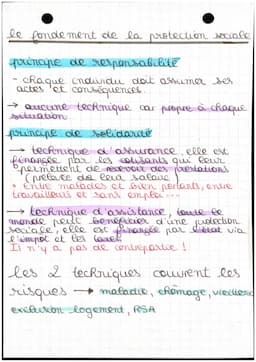 le fondement de la protection sociale
principe de responsabilité
- chaque individu doit assumer ses
actes et conséquences.
→ aucune technique car propre à chaque
situation
principe de solidarité
→ technique d'assurance, elle est
financée par les cotisants qui leur
permettent de recevoir des prestations
(prélevé du leur salaire)
• Entre malades et bien portants, entre
travailleurs et sans emploi...
→ technique d'assistance, toute le
monde peut bénéficier d'une protection
sociale, elle est financée par l'état via
l'impôt et les taxes
Il n'y a pas de contrepartie !
les 2 techniques couvrent les
risques → maladie, chômage, vieillesse
exclusion logement, RSA